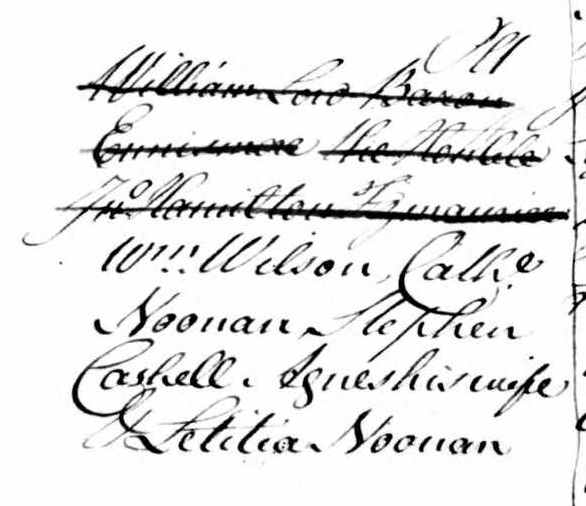 Pll
William Lord Baron
Ennismore the Honble
Jno. Hamilton Fzmaurice
Wm. Wilson, Cathe.
Noonan, Stephen
Cashell, Agnes his wife
& Letitia Noonan